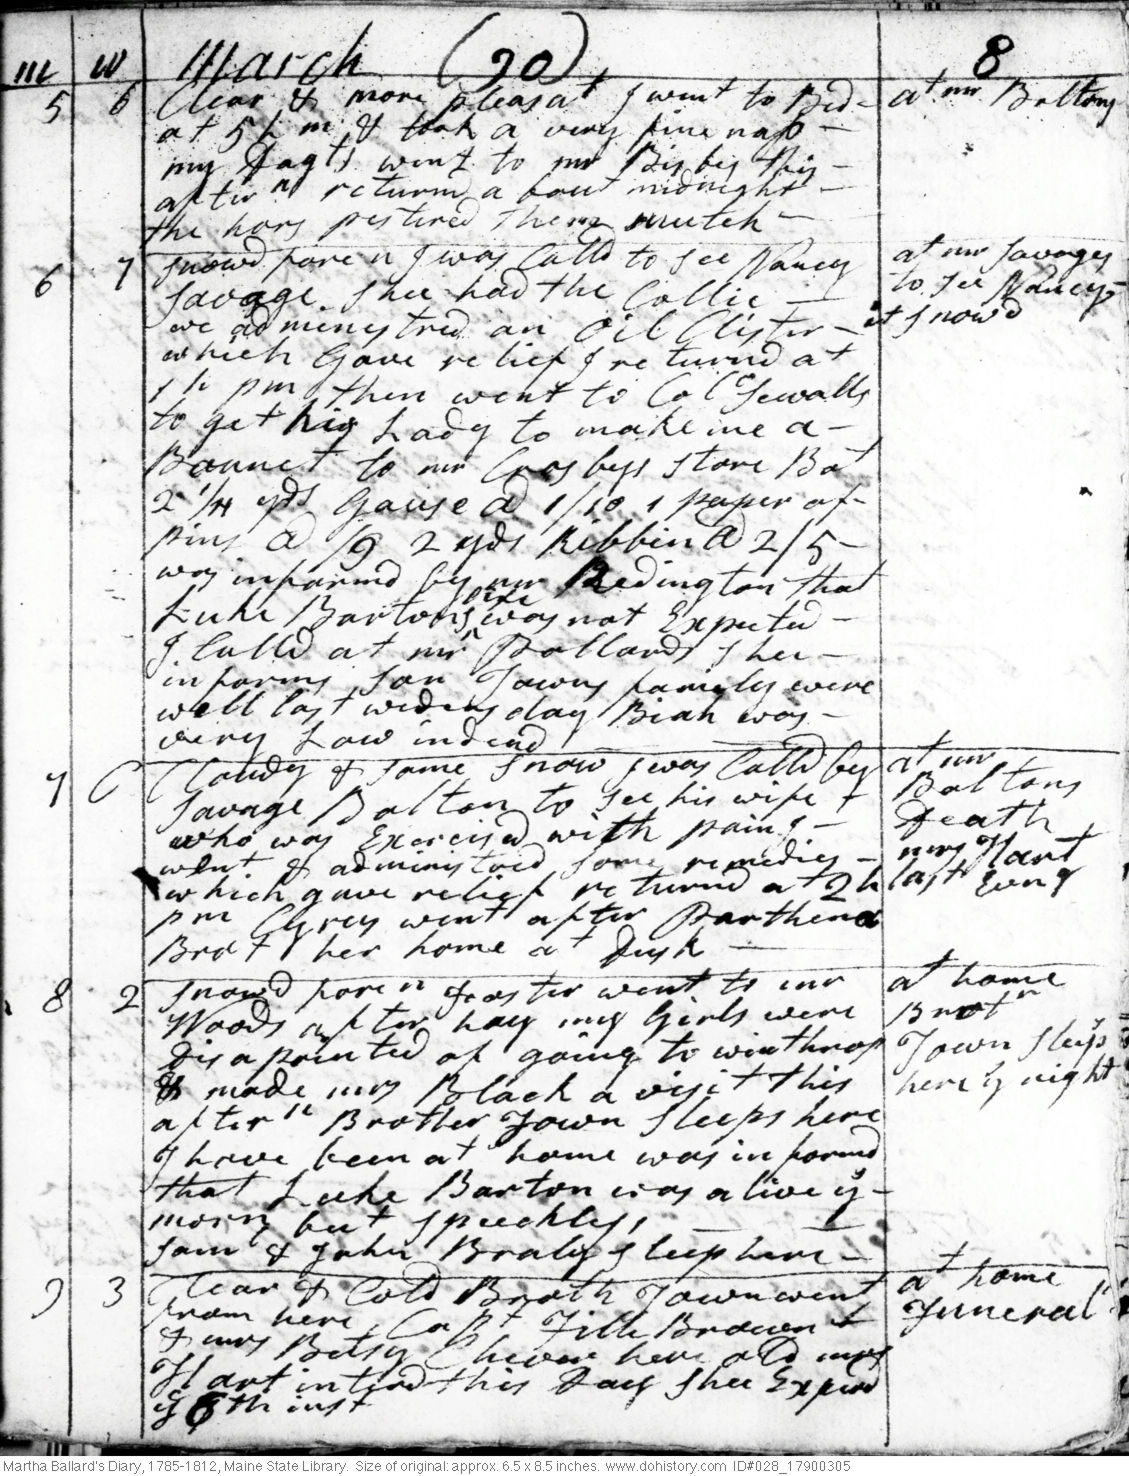 m w March (90) 8
5 6 Clear & more pleasat I went to Bed - at mr Boltons
at 5 h m & took a very fine nap -
my Dagts went to mr Bisbes this -
aftern returnd about midnight -
the hors pestired them mutch -
6 7 Snowd foren I was Calld to see Nancy at mr Savages
Savage. Shee had the Collic - to see Nancy
we administred an Oil Clister - it snowd
which Gave relief I returnd at
1 h pm then went to Colo Sewalls
to get his Lady to make me a -
Bonnet to mr Crosbys Store Bot
2 1/4 yds Gause @ 1/10 1 paper of
pins @ /9 2 yds Ribbin @ 2/5 -
was informd by mr Redington that
Luke Bartons life was not Expected -
I Calld at mr Pollards shee -
informs Son Towns family were
well last wednsday Biah was -
very Low indeed
7 C Cloudy & some snow I was Calld by at mr
Savage Bolton to see his wife + Boltons
who was Exercised with pain I - Death
went & administred some remedies - mrs Hart
which gave relief returnd at 2 h last Evng
pm Cyrus went after Parthena
Brot her home at Dusk -
8 2 Snowd foren Joster went to mr at home
Woods after hay my Girls were Brotr
disapointed of going to winthrop Town Sleeps
& made mrs Black a visit this here ys night
aftern Brother Town Sleeps here
I have been at home was informd
that Luke Barton was alive ys -
morng but Speechless
Sam & John Braly sleep here -
9 3 Clear & Cold Broth Town went at home
from here. Capt Fills Brown & Funeral
& mrs Betsy Chever here old mrs
Hart interd this Day Shee Expird
ye 6th inst
Martha Ballard's Diary, 1785-1812, Maine State Library. Size of original: approx. 6.5 x 8.5 inches. www.dohistory.com ID#028_17900305